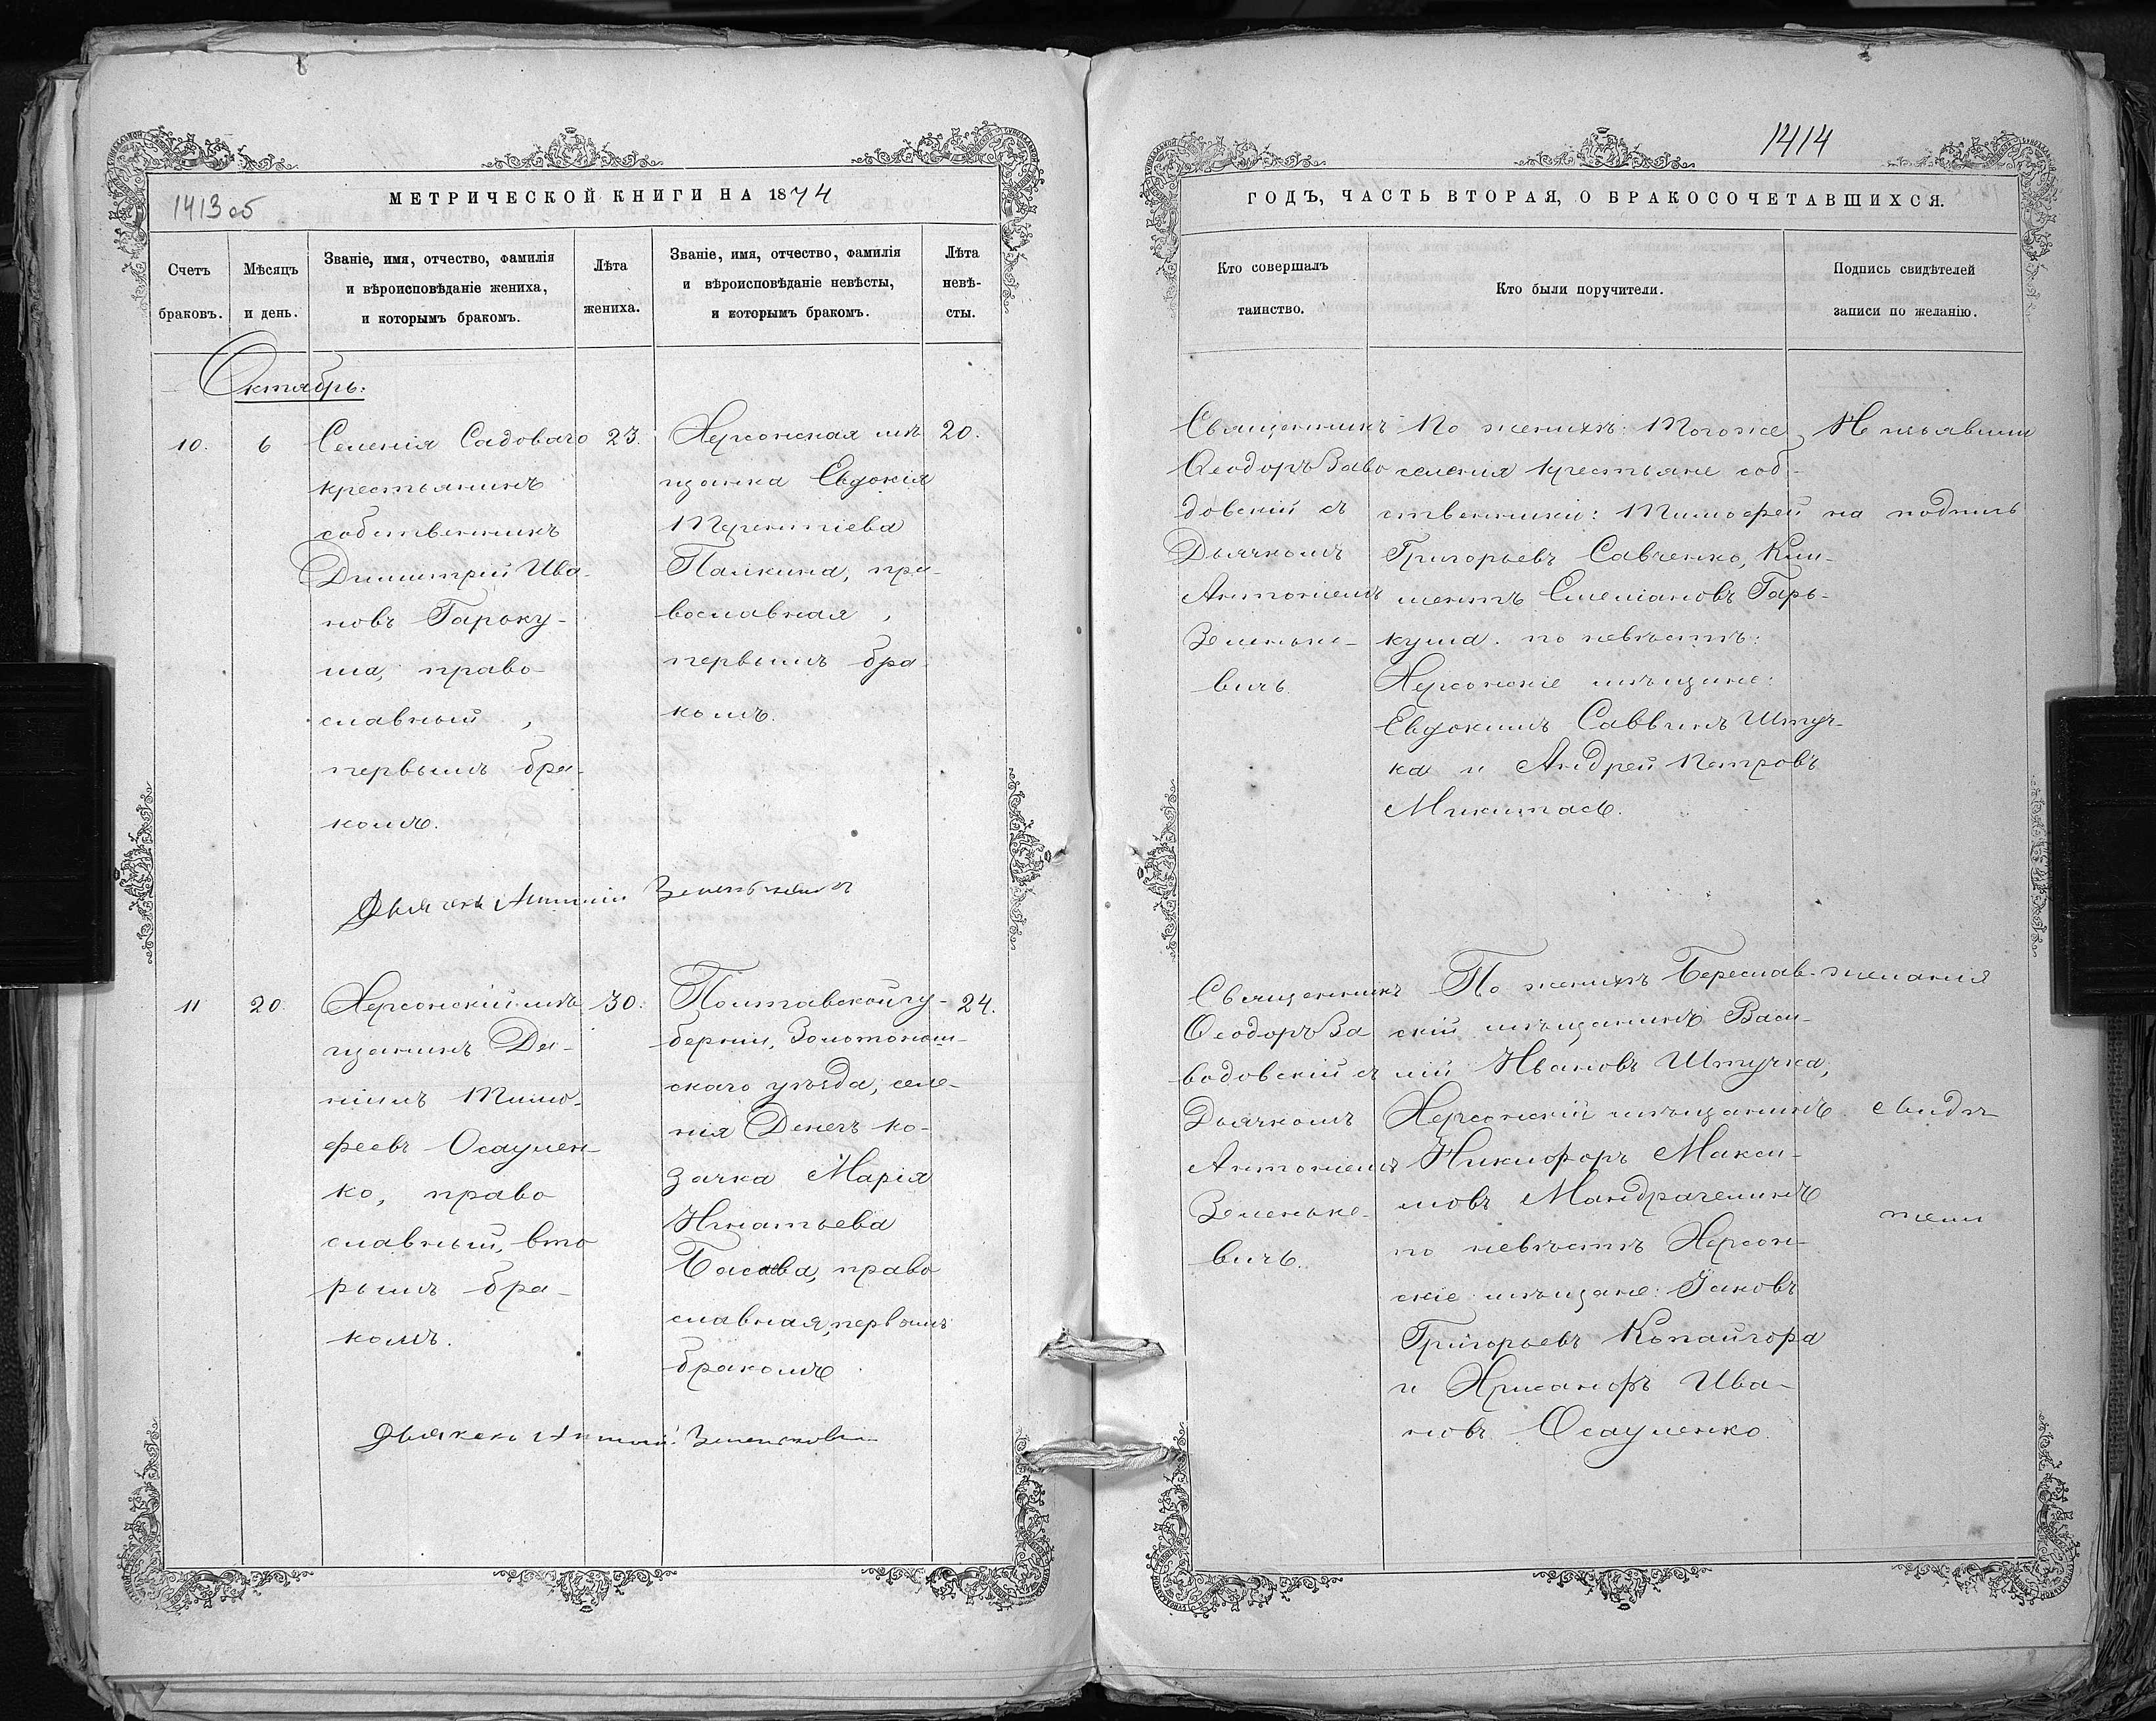 1413 об
МЕТРИЧЕСКОЙ КНИГИ НА 1874
Счетъ
браковъ.
Мѣсяцъ
и день.
Званіе, имя, отчество, фамилія
и вѣроисповѣданіе жениха,
и которымъ бракомъ.
Лѣта
жениха.
Званіе, имя, отчество, фамилія
и вѣроисповѣданіе невѣсты,
и которымъ бракомъ.
Лѣта
невѣ-
сты.
Октябрь:
10.
6
Селенія Садоваго
крестьянинъ
собственникъ
Димитрій Ива-
новъ Гарку-
ша, право-
славный,
первымъ бра-
комъ.
23.
Херсонская мѣ
щанка Евдокія
Терентіева
Палкина, пра-
вославная,
первымъ бра-
комъ.
20.
Дьячекъ Антоній Зенькевичъ
11
20.
Херсонскій мѣ
щанинъ Да-
ніилъ Тимо-
феевъ Осаулен-
ко, право
славный, вто
рымъ бра-
комъ.
30.
Полтавской гу-
берніи, Золотонош-
скаго уѣзда, селе-
нія Денегъ ко-
зачка Марія
Игнатьева
Басова, право
славная, первымъ
бракомъ
24.
Дьячекъ Антоній
1414
ГОДЪ, ЧАСТЬ ВТОРАЯ, О БРАКОСОЧЕТАВШИХСЯ.
Кто совершалъ
таинство.
Кто были поручители.
Подпись свидѣтелей
записи по желанію.
Священникъ
Ѳеодоръ Заво
довскій съ
Дьячкомъ
Антоніемъ
Зеленьке-
вичъ.
По женихѣ: Тогоже
селенія крестьяне соб-
ственники: Тимофей
Григорьевъ Савченко, Кли-
ментъ Емеліановъ Гарь-
куша. по невѣстѣ:
Херсонскіе мѣщане:
Евдокимъ Саввинъ Штуч-
ка и Андрей Петровъ
Микитасъ.
Не изъявили
на подпись
Священникъ
Ѳеодоръ За
водовскій съ
Дьячкомъ
Антоніемъ
Зеленьке-
вичъ.
По женихѣ Береслав-
скій мѣщанинъ Васи-
лій Ивановъ Штучка,
Херсонскій мѣщанинъ
Никифоръ Макси-
мовъ Мандраченинъ
по невѣстѣ Херсон-
скіе мѣщане: Іаковъ
Григорьевъ Копайгора
и Хрисанфъ Ива-
новъ Осауленко.
желанія
свидѣ
тели